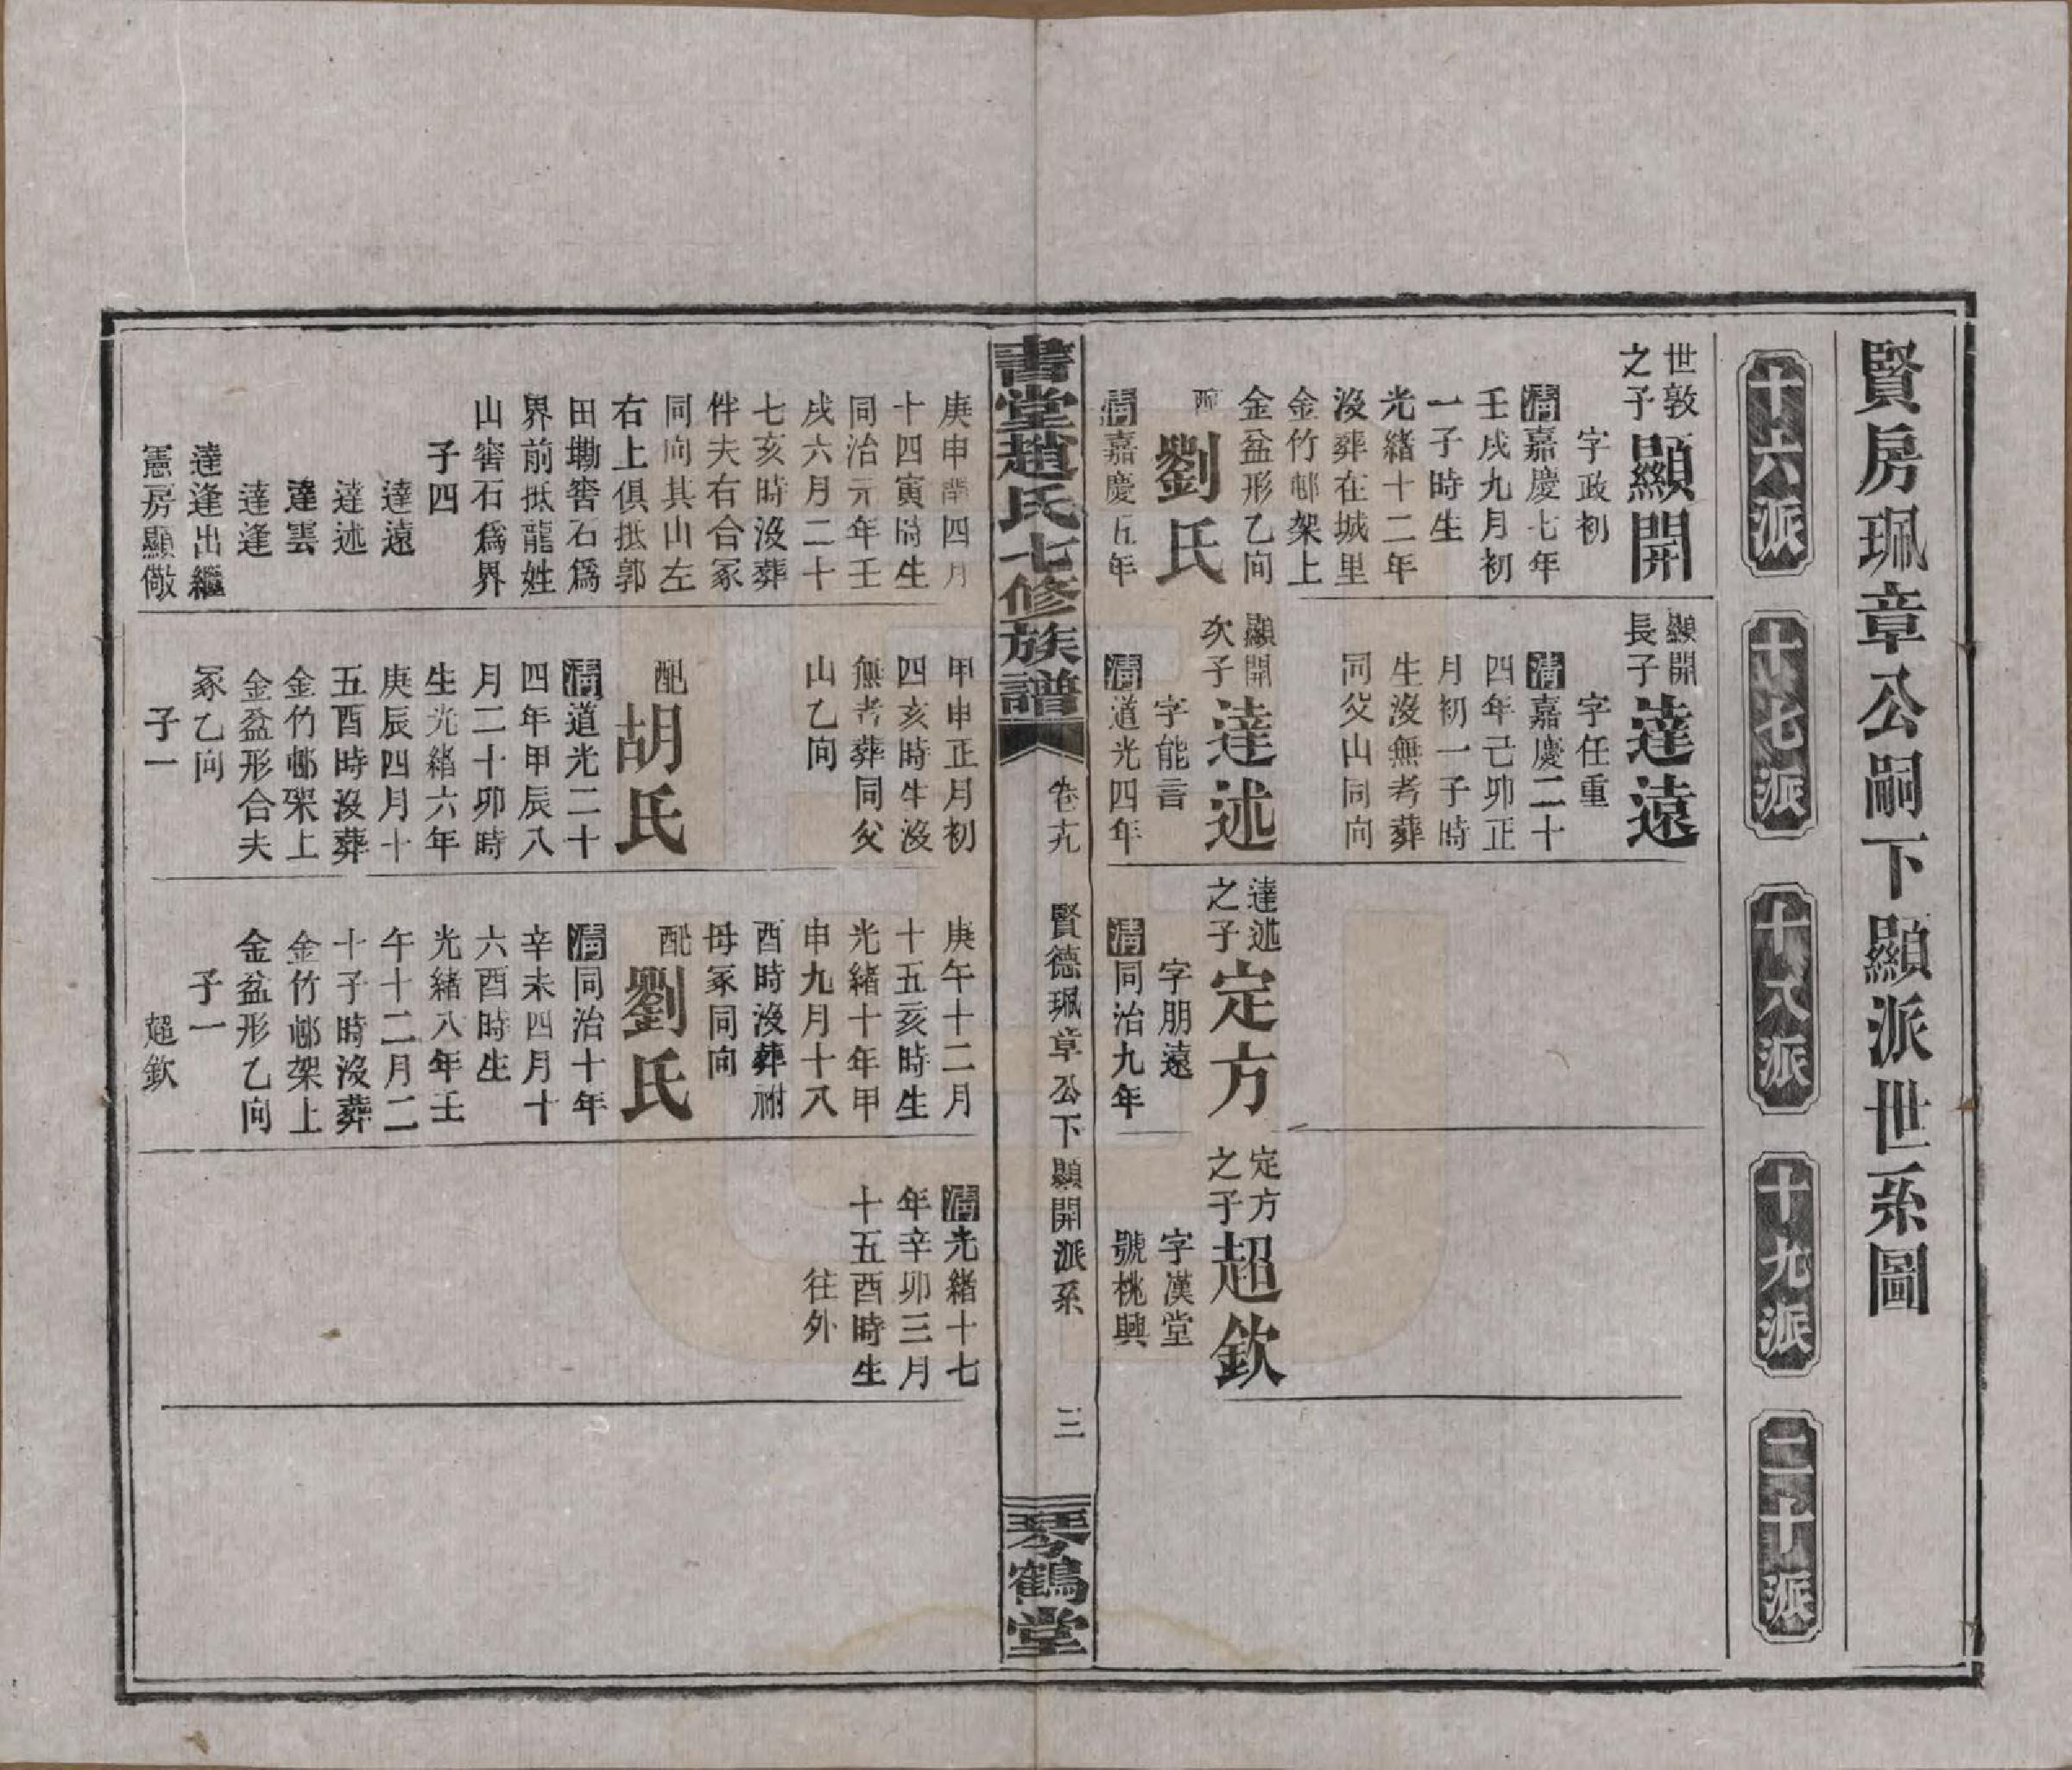 賢房珮章公嗣下顯派世系圖
十六派
十七派
十八派
十九派
二十派
世敦
之子
顯開
字政初
清嘉慶七年
壬戌九月初
一子時生
光緒十二年
沒葬在城里
金竹邨架上
金盆形乙向
配
劉氏
清嘉慶五年
庚申閏四月
十四寅時生
同治元年壬
戌六月二十
七亥時沒葬
伴夫右合冢
同向其山左
右上俱抵郭
田墈窖石爲
界前抵龍姓
山窖石爲界
子四
達遠
達述
達雲
達逢
達逢出繼
憲房顯儆
顯開
長子
達遠
字任重
清嘉慶二十
四年己卯正
月初一子時
生沒無考葬
同父山同向
顯開
次子
達述
字能言
清道光四年
甲申正月初
四亥時生沒
無考葬同父
山乙向
配
胡氏
清道光二十
四年甲辰八
月二十卯時
生光緒六年
庚辰四月十
五酉時沒葬
金竹邨架上
金盆形合夫
冢乙向
子一
達述
之子
定方
字朋遠
清同治九年
庚午十二月
十五亥時生
光緒十年甲
申九月十八
酉時沒葬祔
母冢同向
配
劉氏
清同治十年
辛未四月十
六酉時生
光緒八年壬
午十二月二
十子時沒葬
金竹邨架上
金盆形乙向
子一
超欽
定方
之子
超欽
字漢堂
號桃興
清光緒十七
年辛卯三月
十五酉時生
往外
書堂趙氏七修族譜
卷十九
賢德珮章公下顯開派系
三
琴鶴堂